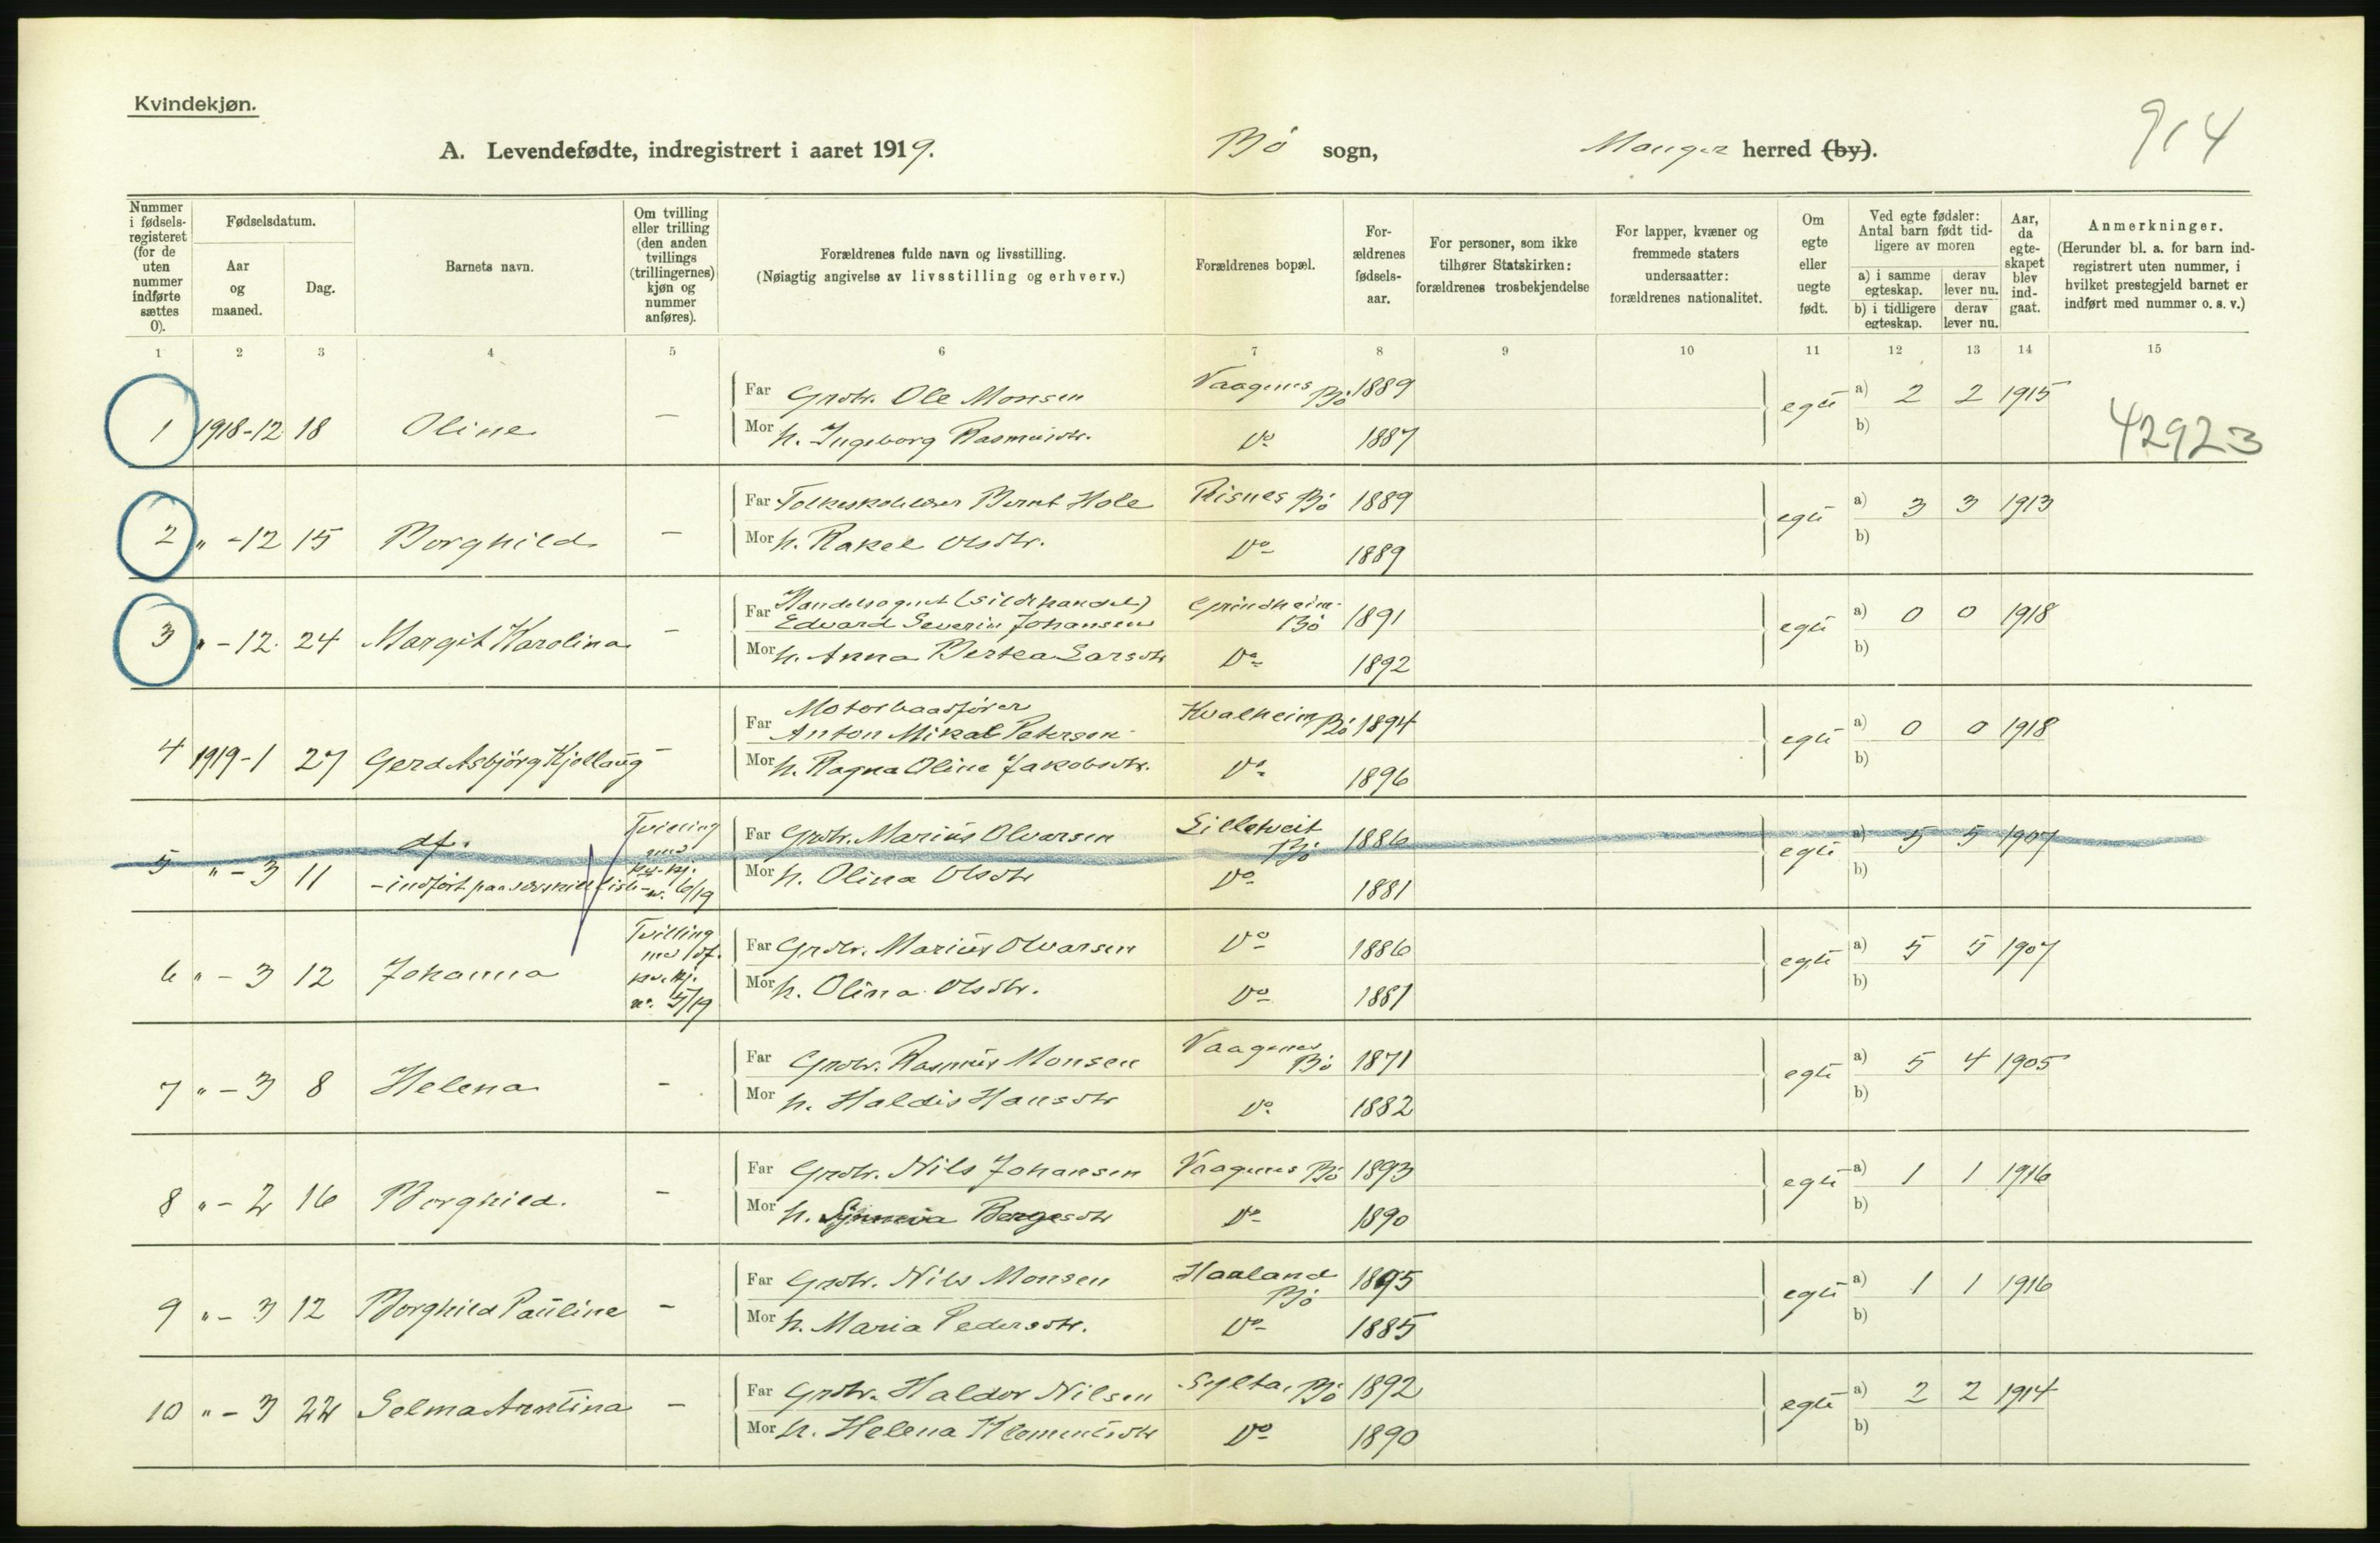 Kvindekjøn.
A. Levendefødte, indregistrert i aaret 1919. Bö sogn, Manger herred (by).
914
Nummer i fødsels-registeret (for de uten nummer indførte sættes 0).
Fødselsdatum.
Aar og maaned.
Dag.
Barnets navn.
Om tvilling eller trilling (den anden tvillings (trillingernes) kjøn og nummer anføres).
Forældrenes fulde navn og livsstilling.
(Nøiagtig angivelse av livsstilling og erhverv.)
Forældrenes bopæl.
For-ældrenes fødsels-aar.
For personer, som ikke tilhører Statskirken: forældrenes trosbekjendelse
For lapper, kvæner og fremmede staters undersaatter: forældrenes nationalitet.
Om egte eller uegte født.
Ved egte fødsler: Antal barn født tid-ligere av moren
a) i samme egteskap. derav lever nu.
b) i tidligere egteskap. derav lever nu.
Aar, da egte-skapet blev ind-gaat.
Anmerkninger.
(Herunder bl. a. for barn ind-registrert uten nummer, i hvilket prestegjeld barnet er indført med nummer o. s. v.)
1 2 3 4 5 6 7 8 9 10 11 12 13 14 15
Far Grdbr. Ole Monsen Vaagenes Bö 1889
1 1918-12 18 Oline - egte a) 2 2 1915 b)
Mor h. Ingeborg Rasmusdtr. Do 1887
42923
Far Folkeskolelærer Bernt Hole Risnes Bö 1889
2 " -12 15 Borghild - egte a) 3 3 1913 b)
Mor h. Rakel Olsdtr. Do 1889
Far Handelsagent (sildehandel) Edvard Severin Johansen Grindheim Bö 1891
3 " -12. 24 Margit Karolina - egte a) 0 0 1918 b)
Mor h. Anna Bertea Larsdtr Do 1892
Far Motorbaadfører Anton Mikal Petersen Kvalheim Bö 1894
4 1919-1 27 Gerd Asbjörg Kjellaug - egte a) 0 0 1918 b)
Mor h. Ragna Oline Jakobsdtr. Do 1896
Far Grdbr. Marius Olvarsen Lilletveit Bö 1886
5 " -3 11 df. - indført paa særskilt liste - Tvilling med kv. kj. nr. 6/19 egte a) 5 5 1907 b)
Mor h. Olina Olsdtr Do 1881
Far Grdbr. Marius Olvarsen Do 1886
6 " -3 12 Johanna Tvilling med df. kv. kj. nr. 5/19 egte a) 5 5 1907 b)
Mor h. Olina Olsdtr. Do 1881
Far Grdbr. Rasmus Monsen Vaagenes Bö 1871
7 " -3 8 Helena - egte a) 5 4 1905 b)
Mor h. Haldis Hansdtr Do 1882
Far Grdbr. Nils Johansen Vaagenes Bö 1893
8 " -2 16 Borghild. - egte a) 1 1 1916 b)
Mor h. Synneva Bergesdtr Do 1890
Far Grdbr. Nils Monsen Haaland Bö 1895
9 " -3 12 Borghild Pauline - egte a) 1 1 1916 b)
Mor h. Maria Pedersdtr. Do 1885
Far Grdbr. Haldor Nilsen Sylta, Bö 1892
10 " -3 22 Selma Arntina - egte a) 2 2 1914 b)
Mor h. Helena Klementsdtr Do 1890